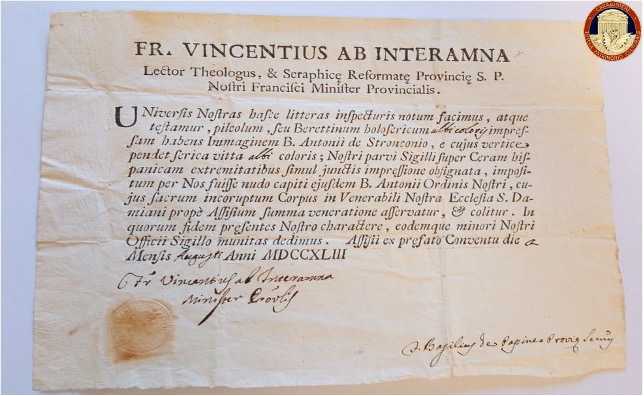 FR. VINCENTIUS AB INTERAMNA
Lector Theologus, & Seraphicę Reformatę Provincię S. P.
Nostri Francisci Minister Provincialis.
UNiversis Nostras hasce litteras inspecturis notum facimus, atque
testamur, pileolum, seu Berettinum holosericum albi coloris impres-
sum habens Immaginem B. Antonii de Stronconio, e cujus vertice
pendet serica vitta albi coloris; Nostri parvi Sigilli super Ceram his-
panicam extremitatibus simul junctis impressione obsignata, imposi-
tum per Nos fuisse nudo capiti ejusdem B. Antonii Ordinis Nostri, cu-
jus sacrum incoruptum Corpus in Venerabili Nostra Ecclesia S. Da-
miani propè Assisium summa veneratione asservatur, & colitur. In
quorum fidem presentes Nostro charactere, eodemque minori Nostri
Officii Sigillo munitas dedimus. Assisii ex prefato Conventu die
Mensis Augusti Anni MDCCXLIII
Fr Vincentius ab Interamna
Minister Prov̄lis
Basilius de